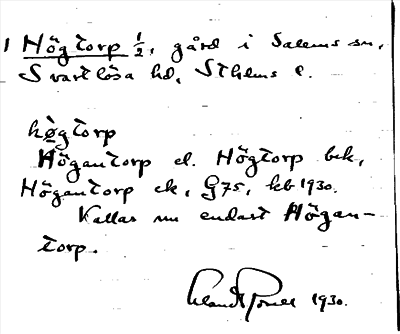 1 Högtorp ½, gård i Salems sn,
Svartlösa hd, Sthlms l.
høgtorp
Högantorp el. Högtorp bek,
Högantorp ek, G75, kb 1930.
Kallas nu endast Högan-
torp.
1930.